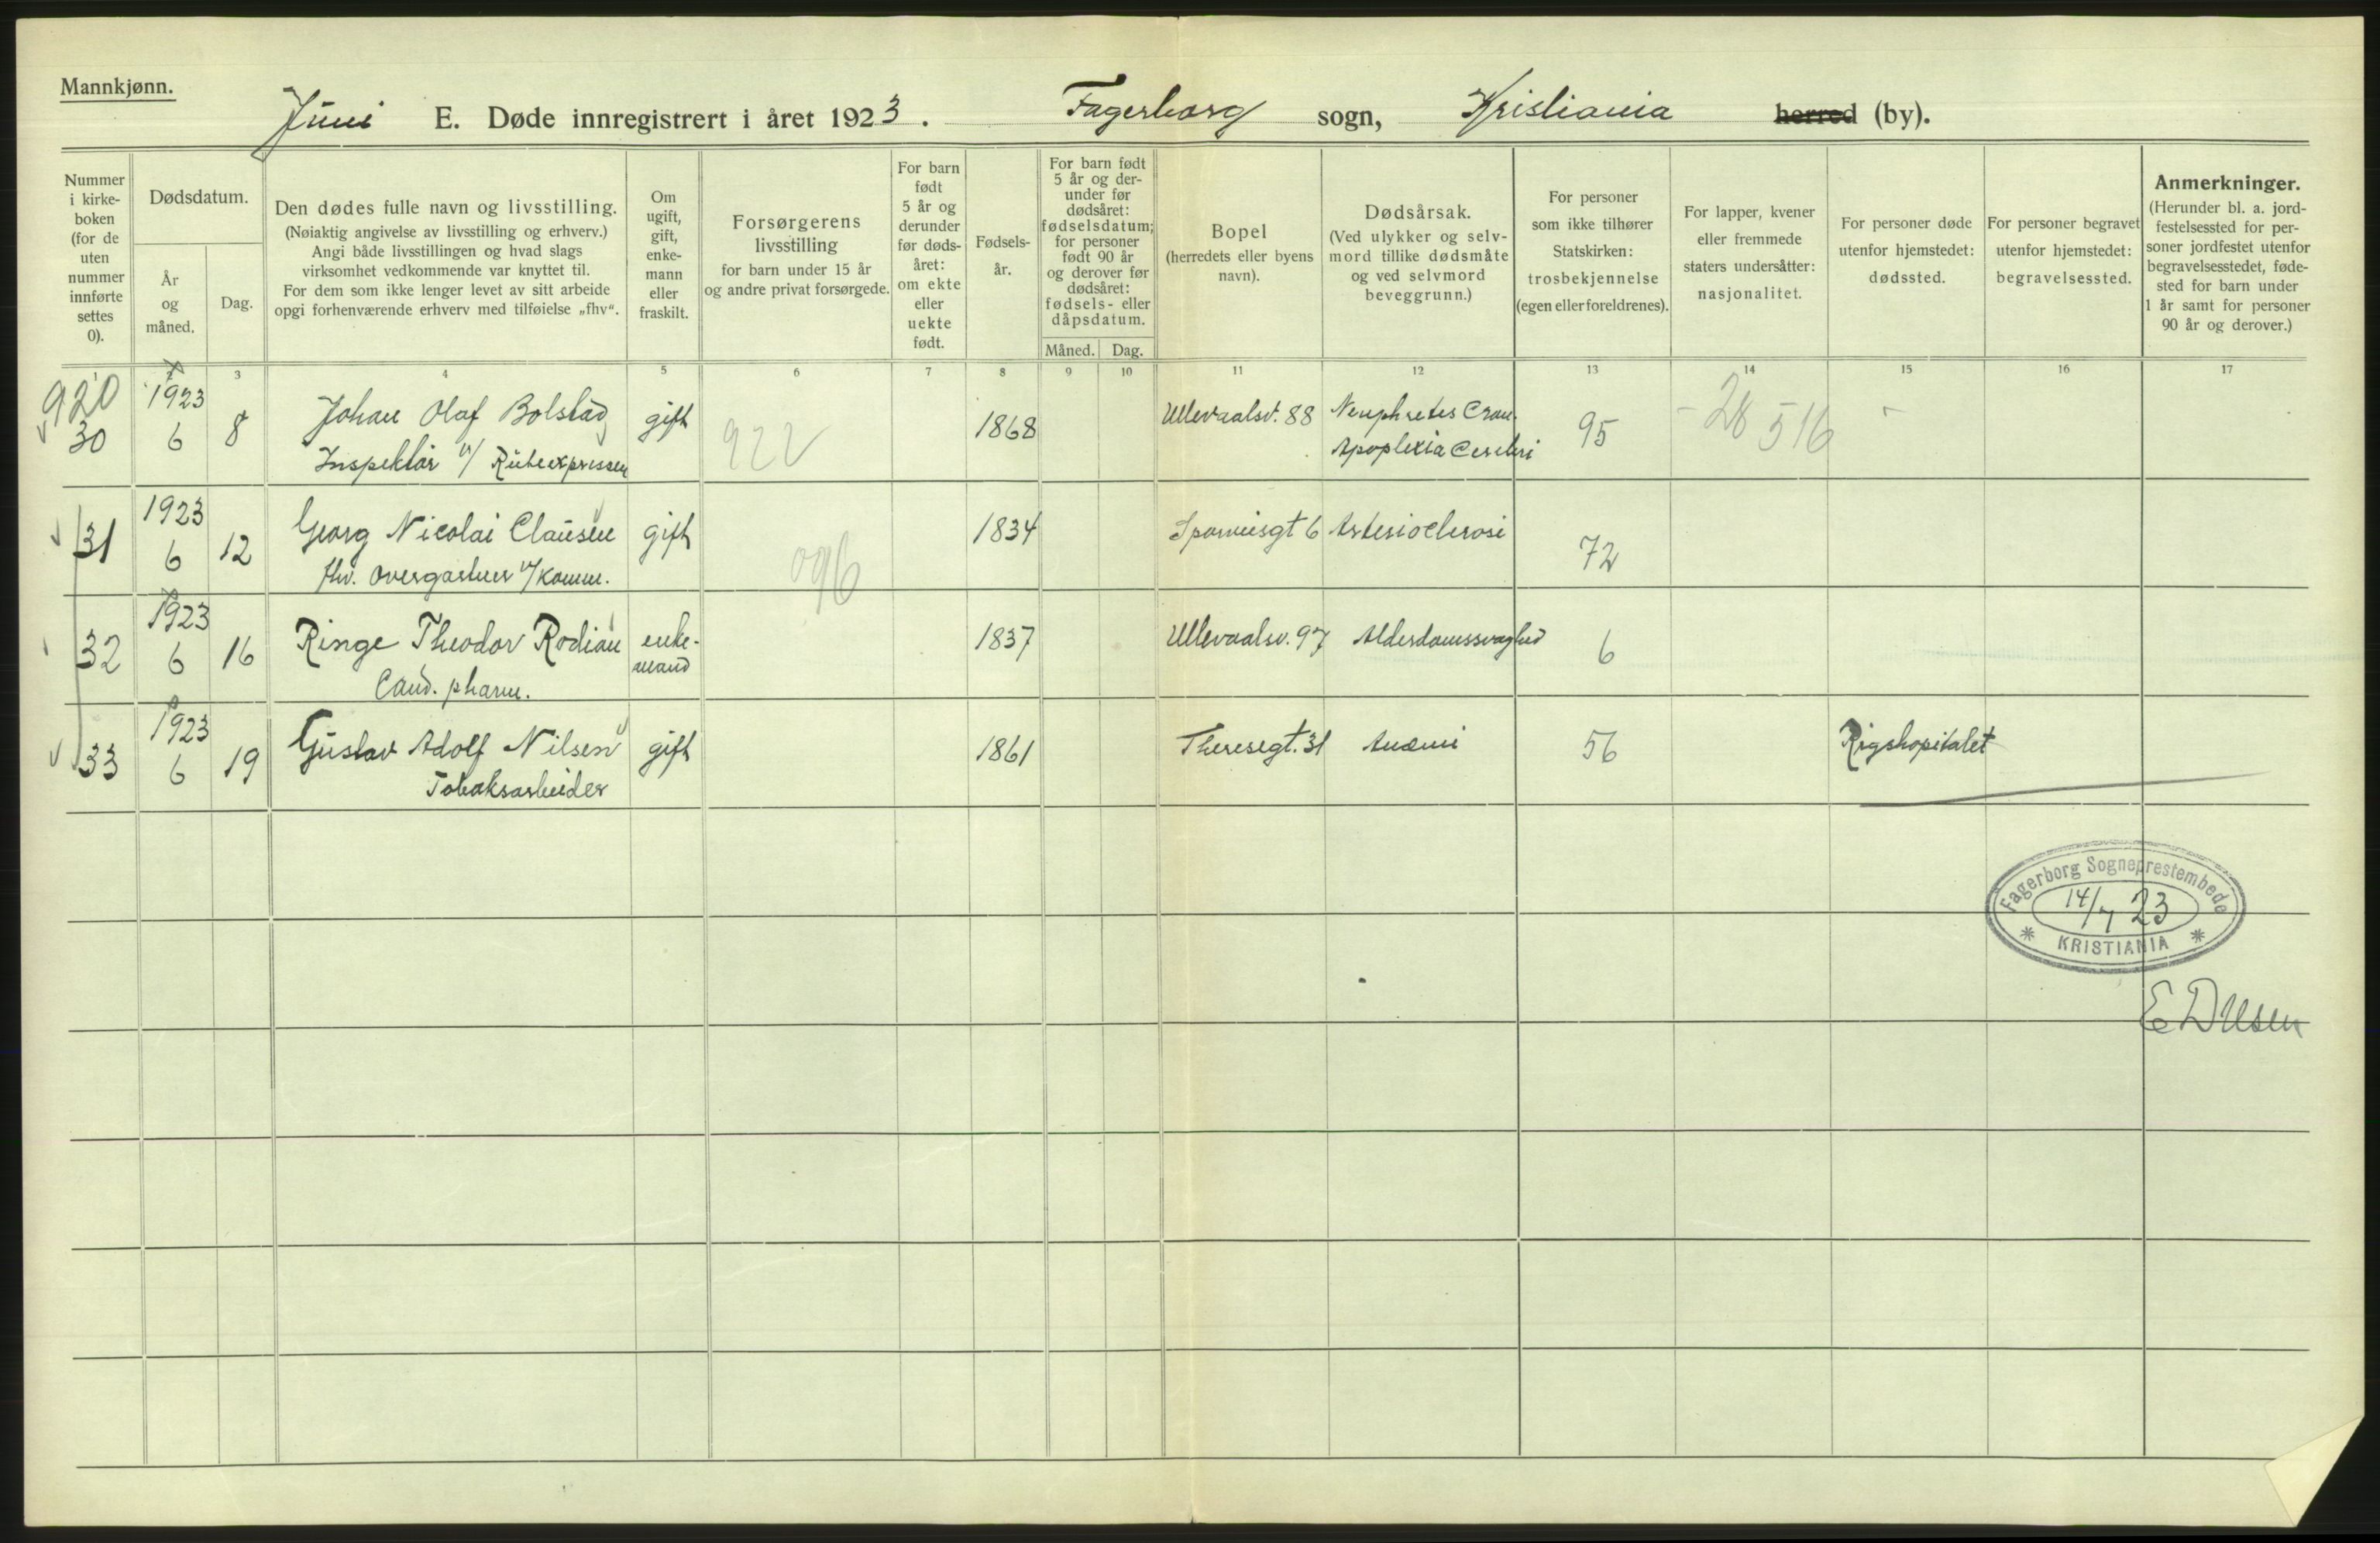 Mannkjønn.
Juni E. Døde innregistrert i året 1923. Fagerborg sogn, Kristiania herred (by).
Nummer i kirke-boken (for de uten nummer innførte settes 0).
Dødsdatum.
År og måned.
Dag.
Den dødes fulle navn og livsstilling.
(Nøiaktig angivelse av livsstilling og erhverv.)
Angi både livsstillingen og hvad slags
virksomhet vedkommende var knyttet til.
For dem som ikke lenger levet av sitt arbeide
opgi forhenværende erhverv med tilføielse „fhv“.
Om ugift, gift, enke-mann eller fraskilt.
Forsørgerens
livsstilling
for barn under 15 år
og andre privat forsørgede.
For barn født 5 år og derunder før døds-året: om ekte eller uekte født.
Fødsels-år.
For barn født 5 år og der-under før dødsåret: fødselsdatum; for personer født 90 år og derover før dødsåret: fødsels- eller dåpsdatum.
Måned. Dag.
Bopel
(herredets eller byens
navn).
Dødsårsak.
(Ved ulykker og selv-
mord tillike dødsmåte
og ved selvmord
beveggrunn.)
For personer
som ikke tilhører
Statskirken:
trosbekjennelse
(egen eller foreldrenes).
For lapper, kvener
eller fremmede
staters undersåtter:
nasjonalitet.
For personer døde
utenfor hjemstedet:
dødssted.
For personer begravet
utenfor hjemstedet:
begravelsessted.
Anmerkninger.
(Herunder bl. a. jord-
festelsessted for per-
soner jordfestet utenfor
begravelsesstedet, føde-
sted for barn under
1 år samt for personer
90 år og derover.)
1 2 3 4 5 6 7 8 9 10 11 12 13 14 15 16 17
920
30 1923 6 8 Johan Olaf Bolstad gift 922 1868 Ullevaalsv. 88 95 28 516
Inspektør v/ Ruteexpressen Apoplexia Cerebri
31 1923 6 12 Georg Nicolai Clausen gift 096 1834 Sporveisgt 6 Arterioclerose 72
fhv. overgartner v/ Komm.
32 1923 6 16 Ringe Theodor Rodian enke-mand 1837 Ullevaalsv. 97 Alderdomssvaghed 6
Cand. pharm.
33 1923 6 19 Gustav Adolf Nilsen gift 1861 Theresegt. 31 Anæmi 56 Rigshopitalet
Tobaksarbeider
Fagerborg Sogneprestembede
14/7 23
KRISTIANIA